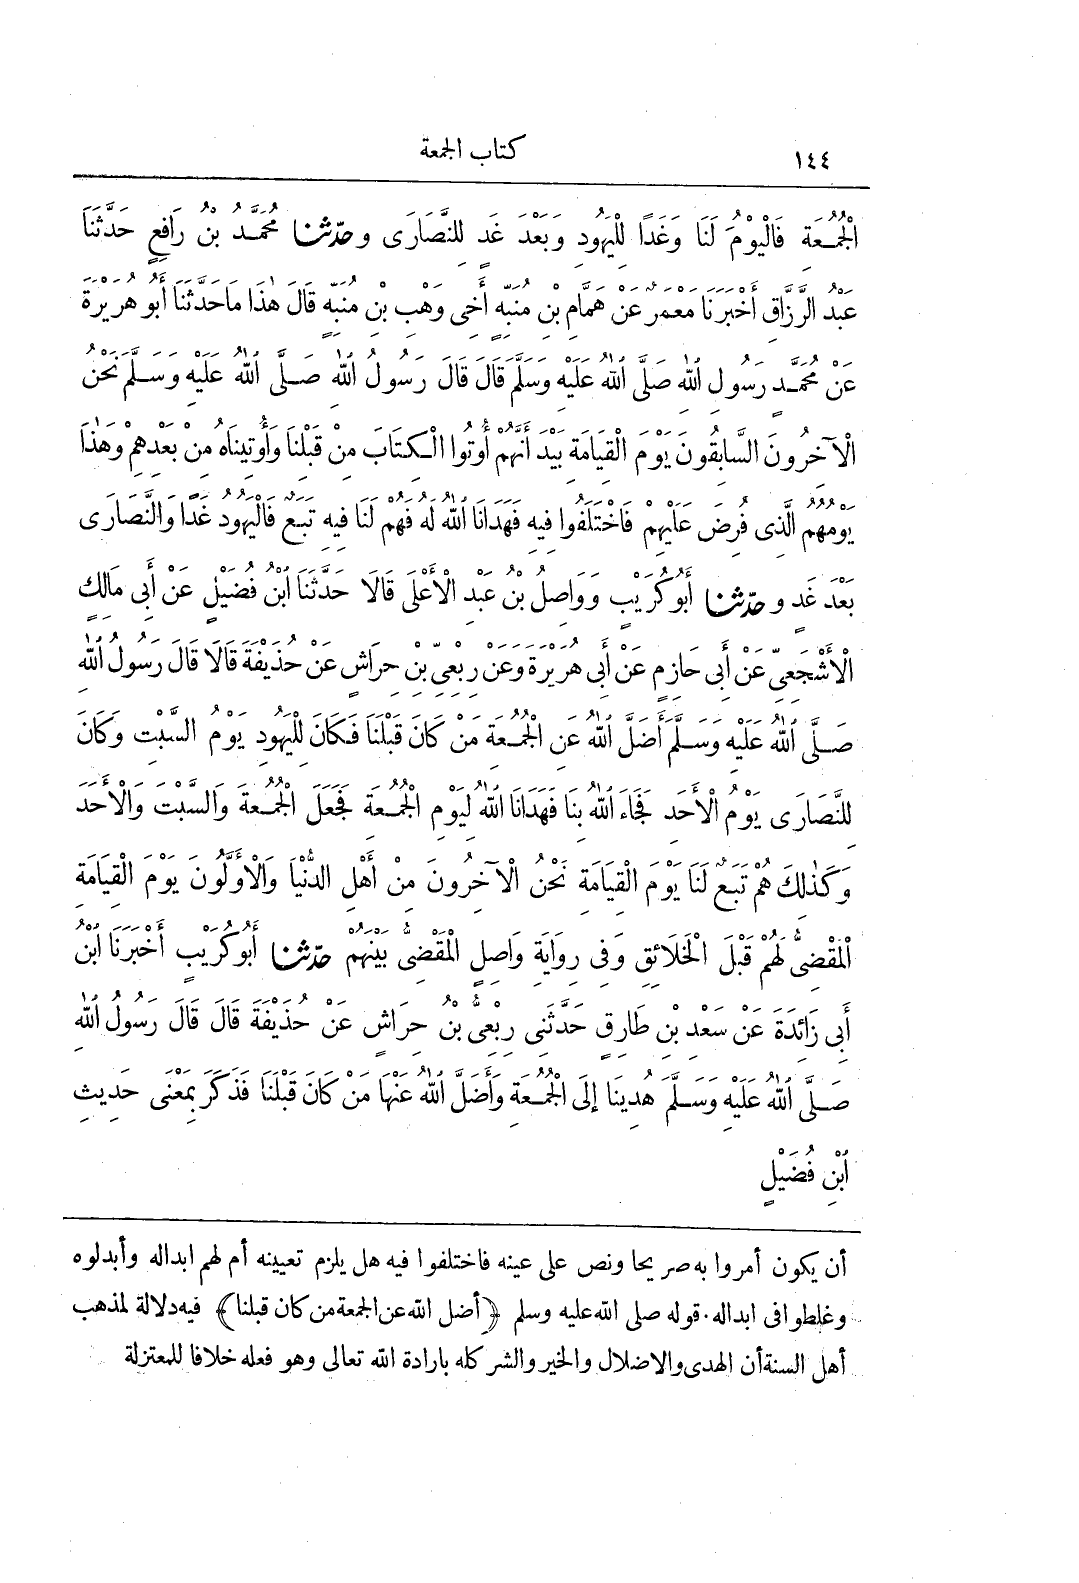 ١٤٤ كتاب الجمعة
الْجُمُعَةِ فَالْيَوْمُ لَنَا وَغَدًا لِلْيَهُودِ وَبَعْدَ غَدٍ لِلنَّصَارَى و حَدَّثَنَا مُحَمَّدُ بْنُ رَافِعٍ حَدَّثَنَا
عَبْدُ الرَّزَّاقِ أَخْبَرَنَا مَعْمَرٌ عَنْ هَمَّامِ بْنِ مُنَبِّهٍ أَخِي وَهْبِ بْنِ مُنَبِّهٍ قَالَ هٰذَا مَا حَدَّثَنَا أَبُو هُرَيْرَةَ
عَنْ مُحَمَّدٍ رَسُولِ اللهِ صَلَّى اللهُ عَلَيْهِ وَسَلَّمَ قَالَ قَالَ رَسُولُ اللهِ صَلَّى اللهُ عَلَيْهِ وَسَلَّمَ نَحْنُ
الْآخِرُونَ السَّابِقُونَ يَوْمَ الْقِيَامَةِ بَيْدَ أَنَّهُمْ أُوتُوا الْكِتَابَ مِنْ قَبْلِنَا وَأُوتِينَاهُ مِنْ بَعْدِهِمْ وَهٰذَا
يَوْمُهُمُ الَّذِى فُرِضَ عَلَيْهِمْ فَاخْتَلَفُوا فِيهِ فَهَدَانَا اللهُ لَهُ فَهُمْ لَنَا فِيهِ تَبَعٌ فَالْيَهُودُ غَدًا وَالنَّصَارَى
بَعْدَ غَدٍ و حَدَّثَنَا أَبُو كُرَيْبٍ وَوَاصِلُ بْنُ عَبْدِ الْأَعْلَى قَالَا حَدَّثَنَا ابْنُ فُضَيْلٍ عَنْ أَبِى مَالِكٍ
الْأَشْجَعِىِّ عَنْ أَبِى حَازِمٍ عَنْ أَبِى هُرَيْرَةَ وَعَنْ رِبْعِىِّ بْنِ حِرَاشٍ عَنْ حُذَيْفَةَ قَالَا قَالَ رَسُولُ اللهِ
صَلَّى اللهُ عَلَيْهِ وَسَلَّمَ أَضَلَّ اللهُ عَنِ الْجُمُعَةِ مَنْ كَانَ قَبْلَنَا فَكَانَ لِلْيَهُودِ يَوْمُ السَّبْتِ وَكَانَ
لِلنَّصَارَى يَوْمُ الْأَحَدِ فَجَاءَ اللهُ بِنَا فَهَدَانَا اللهُ لِيَوْمِ الْجُمُعَةِ فَجَعَلَ الْجُمُعَةَ وَالسَّبْتَ وَالْأَحَدَ
وَكَذٰلِكَ هُمْ تَبَعٌ لَنَا يَوْمَ الْقِيَامَةِ نَحْنُ الْآخِرُونَ مِنْ أَهْلِ الدُّنْيَا وَالْأَوَّلُونَ يَوْمَ الْقِيَامَةِ
الْمَقْضِىُّ لَهُمْ قَبْلَ الْخَلَائِقِ وَفِى رِوَايَةِ وَاصِلٍ الْمَقْضِىُّ بَيْنَهُمْ حَدَّثَنَا أَبُو كُرَيْبٍ أَخْبَرَنَا ابْنُ
أَبِى زَائِدَةَ عَنْ سَعْدِ بْنِ طَارِقٍ حَدَّثَنِى رِبْعِىُّ بْنُ حِرَاشٍ عَنْ حُذَيْفَةَ قَالَ قَالَ رَسُولُ اللهِ
صَلَّى اللهُ عَلَيْهِ وَسَلَّمَ هُدِينَا إِلَى الْجُمُعَةِ وَأَضَلَّ اللهُ عَنْهَا مَنْ كَانَ قَبْلَنَا فَذَكَرَ بِمَعْنَى حَدِيثِ
ابْنِ فُضَيْلٍ
أن يكون أمروا به صريحا ونص على عينه فاختلفوا فيه هل يلزم تعيينه أم لهم ابداله وأبدلوه
وغلطوا فى ابداله . قوله صلى الله عليه وسلم ﴿أضل الله عن الجمعة من كان قبلنا﴾ فيه دلالة لمذهب
أهل السنة أن الهدى والاضلال والخير والشر كله بارادة الله تعالى وهو فعله خلافا للمعتزلة